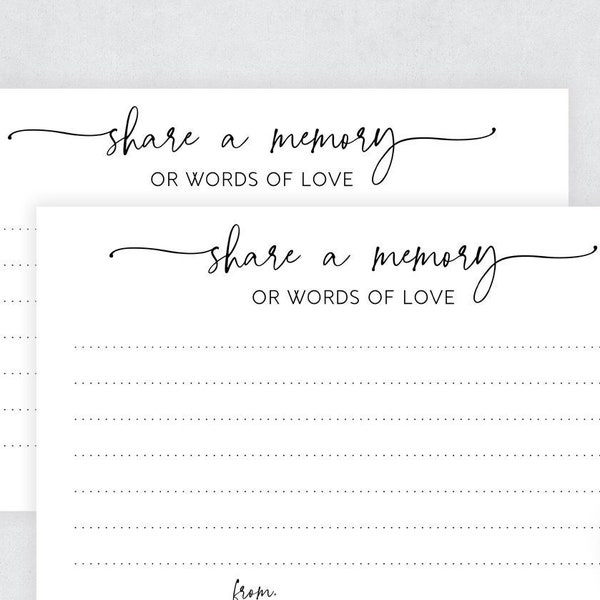 share a memory
OR WORDS OF LOVE
share a memory
OR WORDS OF LOVE
from.